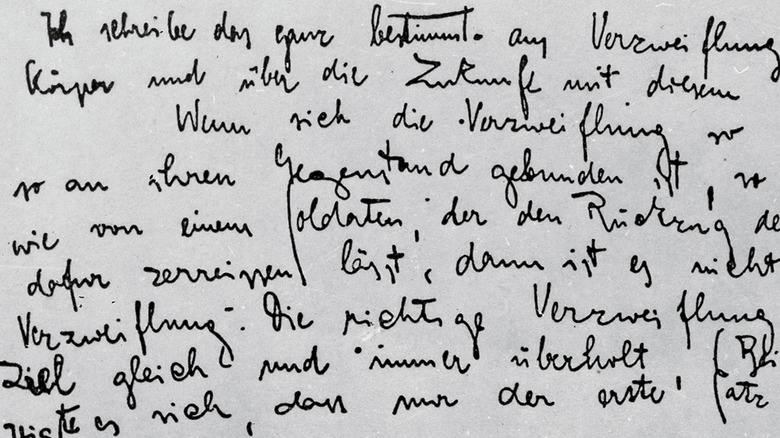 Ich schreibe das ganz bestimmt aus Verzweiflung
Körper und über die Zukunft mit diesem
Wenn sich die Verzweiflung so
so an ihren Gegenstand gebunden ist, so
wie von einem Soldaten, der den Rückzug de
dafür zerreissen lässt, dann ist es nicht
Verzweiflung. Die richtige Verzweiflung
Ziel gleich und immer überholt
es sich, dass nur der erste